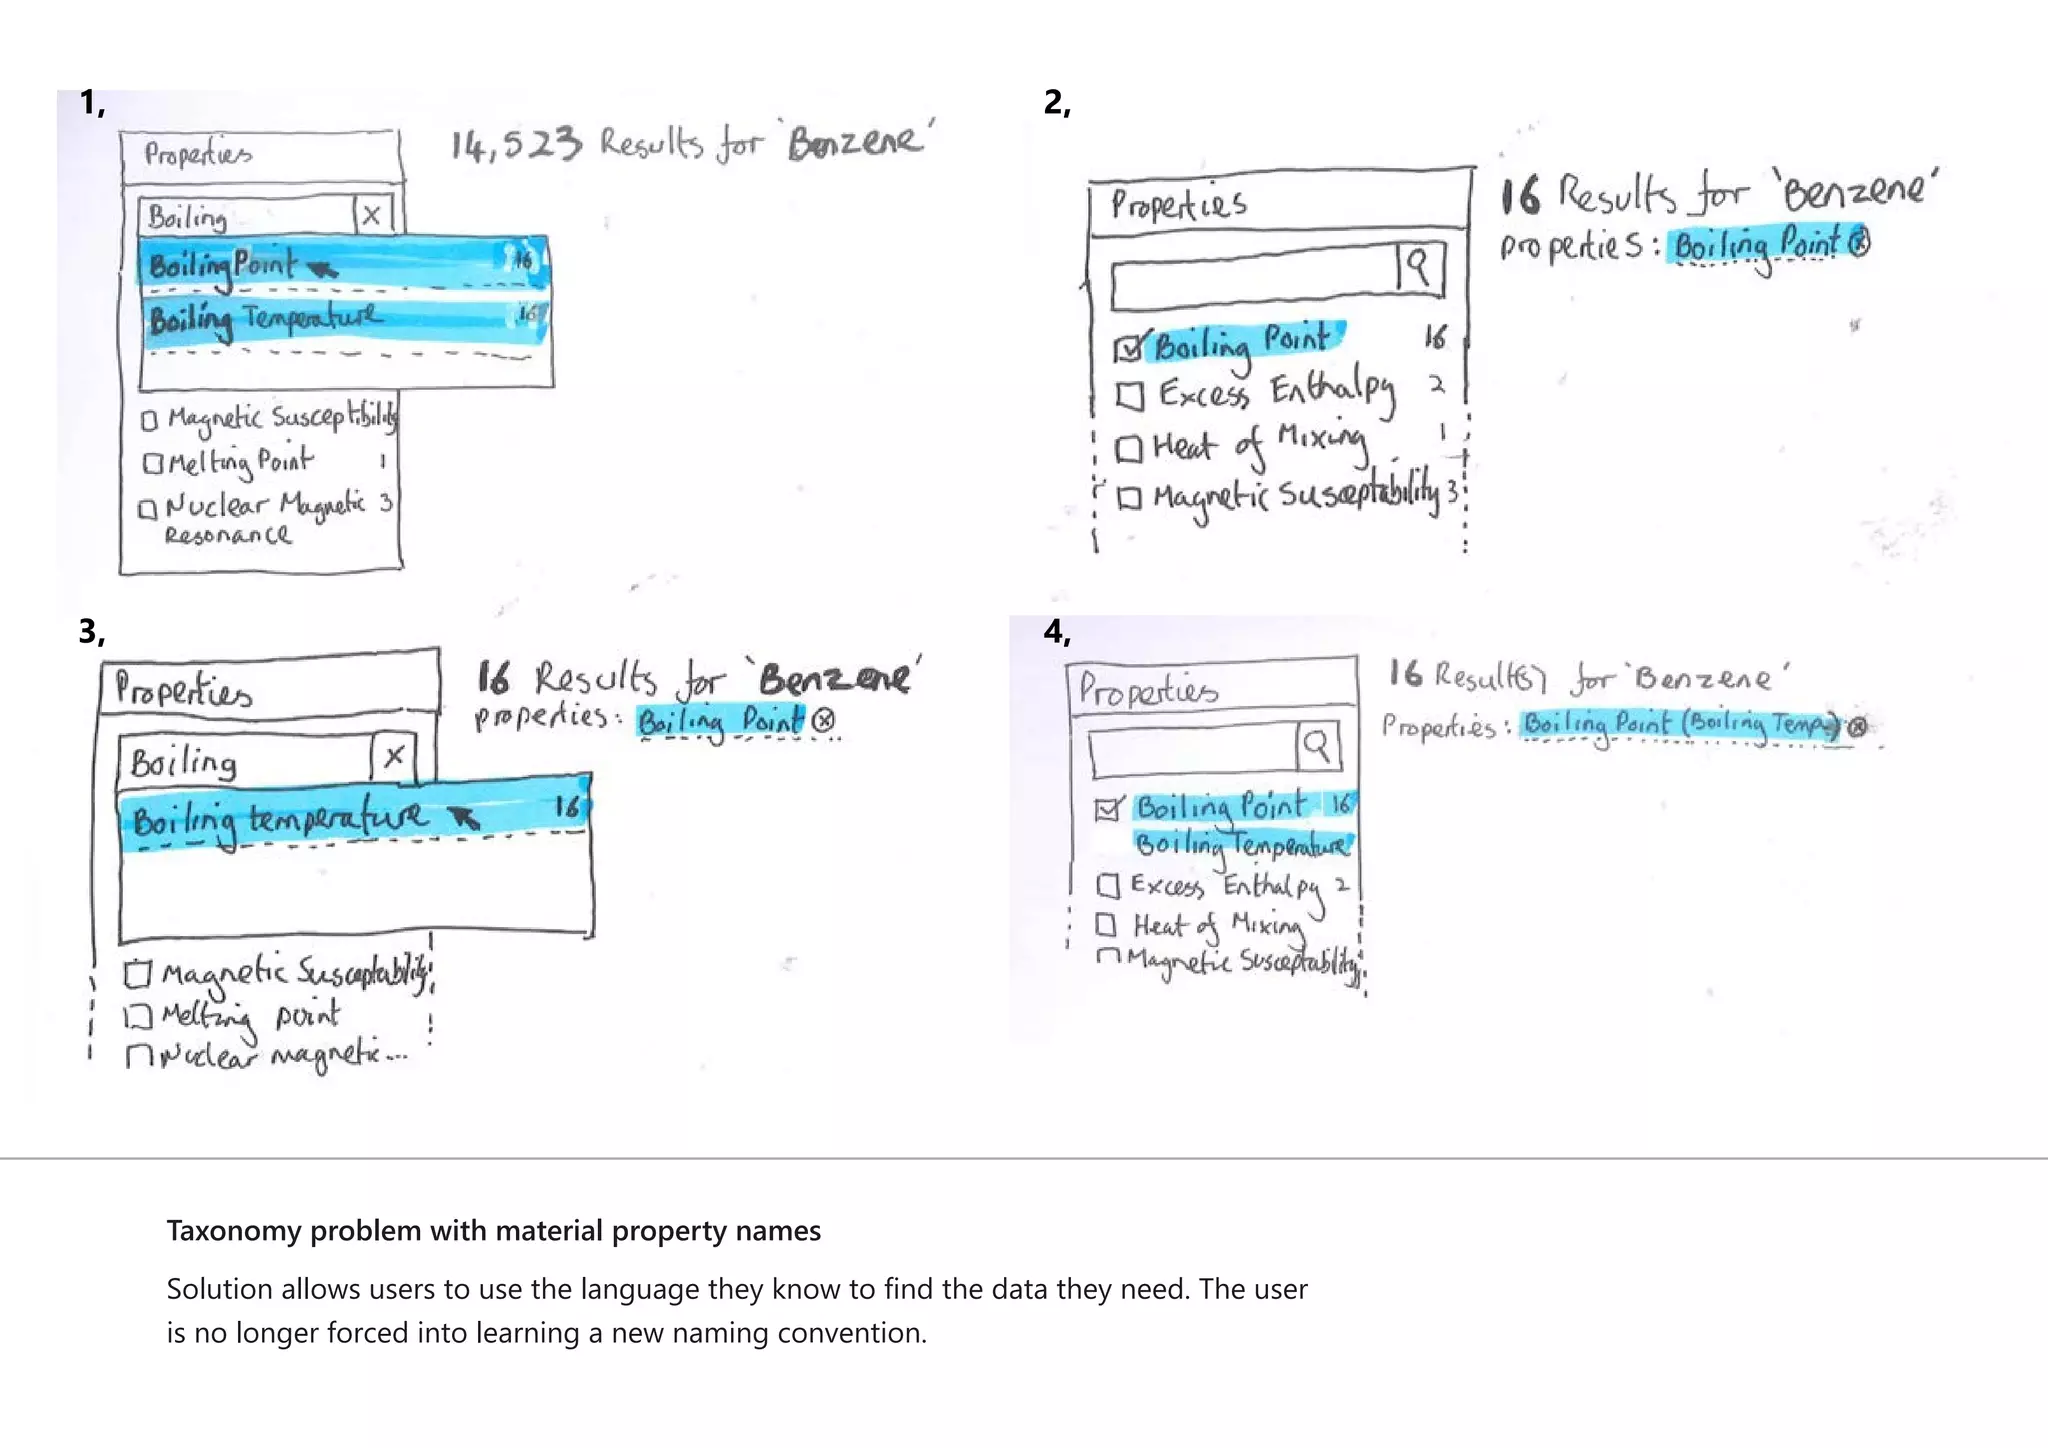 1,
Properties
14,523 Results for 'Benzene'
Boiling X
Boiling Point 16
Boiling Temperature 16
Magnetic Susceptibility
Melting Point 1
Nuclear Magnetic 3
Resonance
2,
Properties
16 Results for 'Benzene'
properties: Boiling Point
Boiling Point 16
Excess Enthalpy 2
Heat of Mixing 1
Magnetic Susceptability 3
3,
Properties
16 Results for 'Benzene'
properties: Boiling Point
Boiling X
Boiling temperature 16
Magnetic Susceptability
Melting point
Nuclear magnetic...
4,
Properties
16 Result(s) for 'Benzene'
Properties: Boiling Point (Boiling Temp)
Boiling Point 16
Boiling Temperature
Excess Enthalpy 2
Heat of Mixing
Magnetic Susceptability
Taxonomy problem with material property names
Solution allows users to use the language they know to find the data they need. The user
is no longer forced into learning a new naming convention.